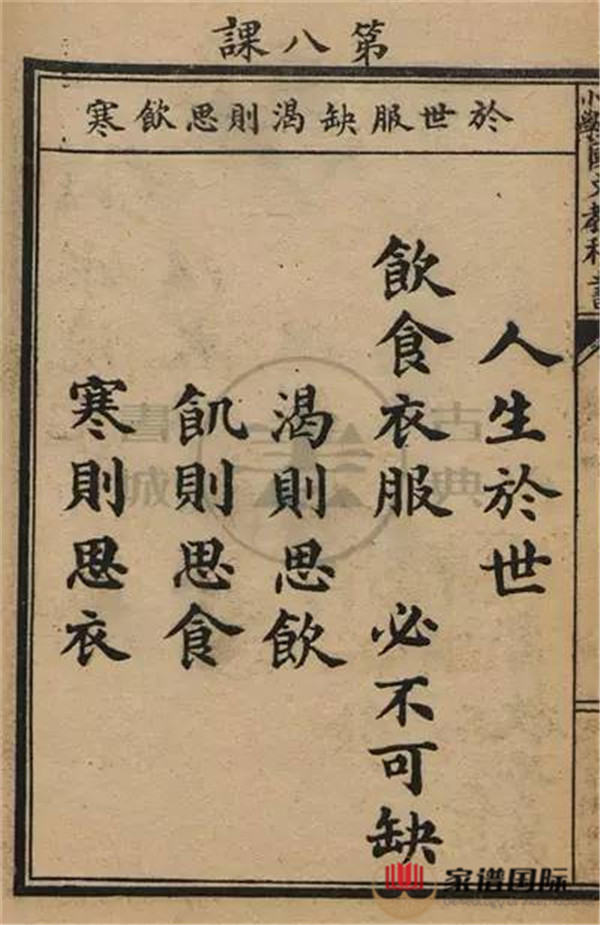 第八課
於世服缺渴則思飲寒
人生於世
飲食衣服 必不可缺
渴則思飲
飢則思食
寒則思衣
小學國文教科書
古典書城
家谱国际